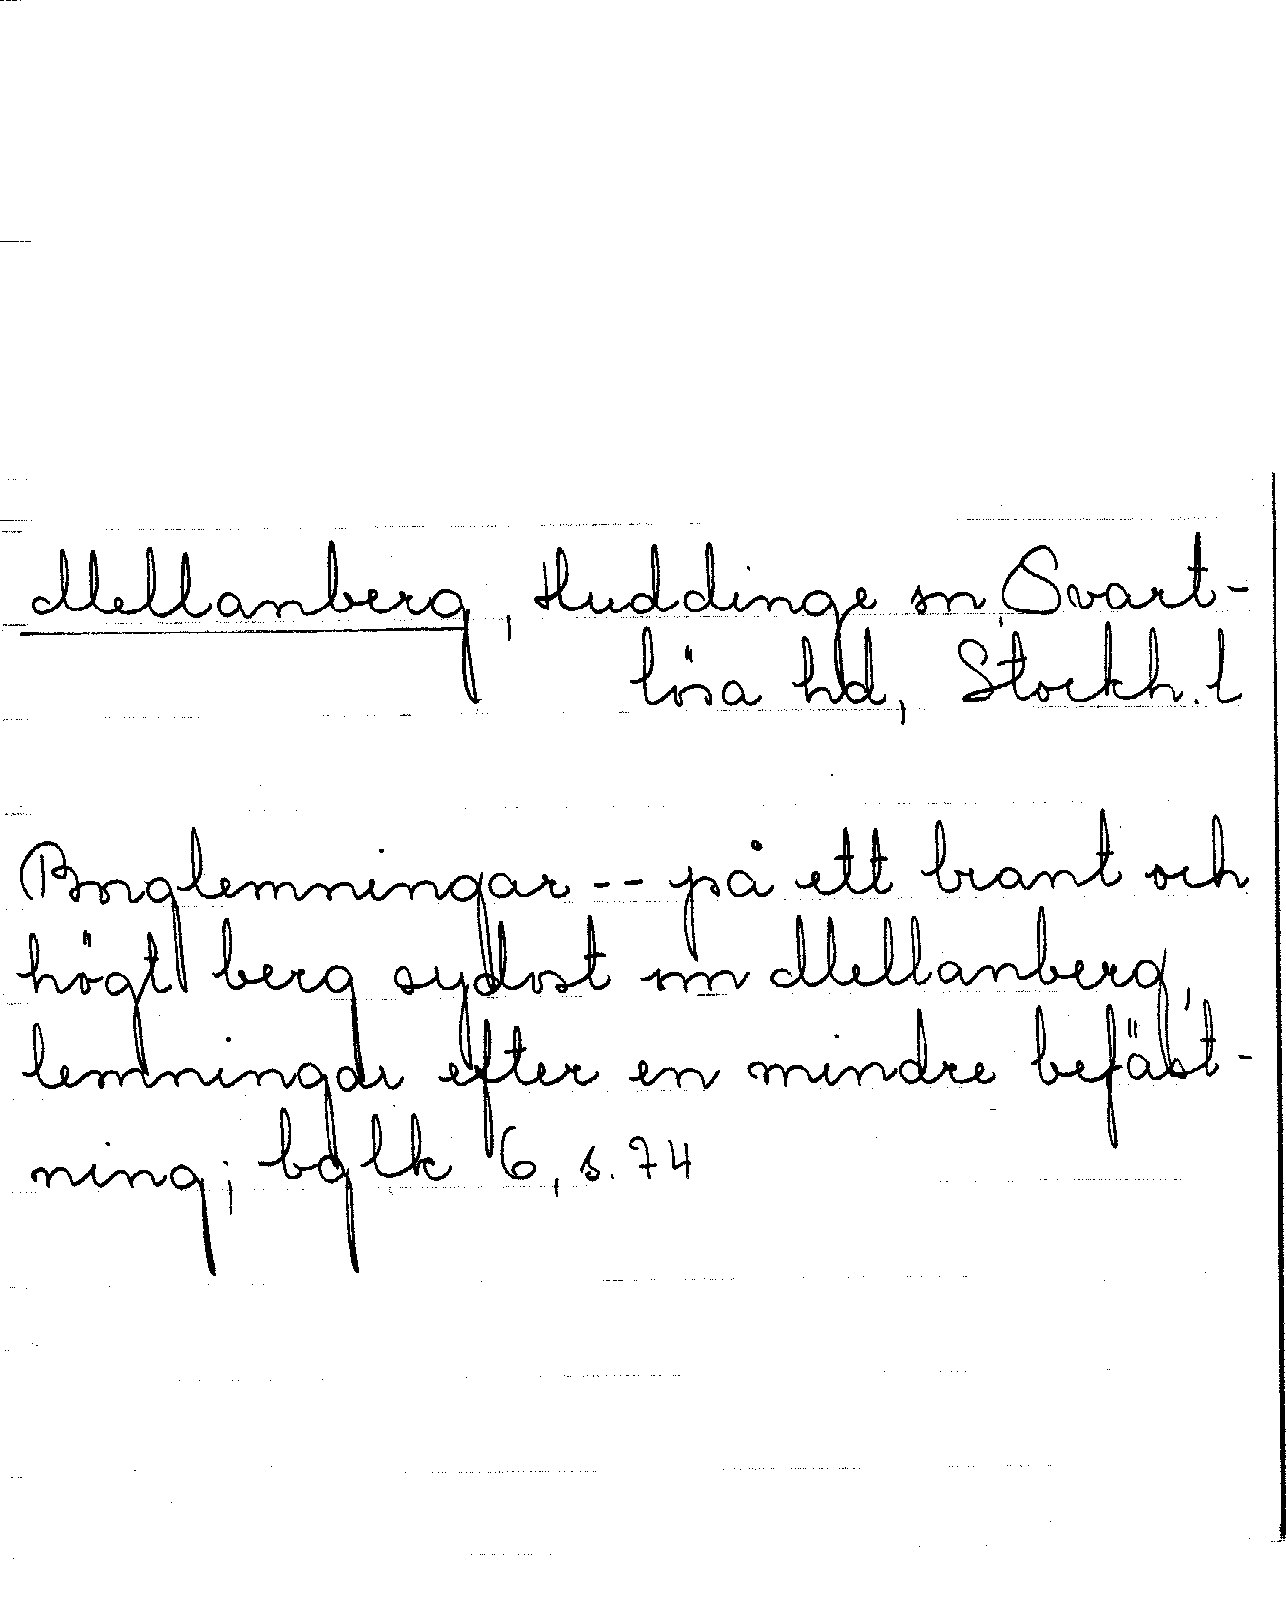 Mellanberg, Huddinge sn, Svart-
lösa hd, Stockh. l
Borglemningar -- på ett brant och
högt berg sydost om Mellanberg,
lemningar efter en mindre befäst-
ning; bglk 6, s. 74